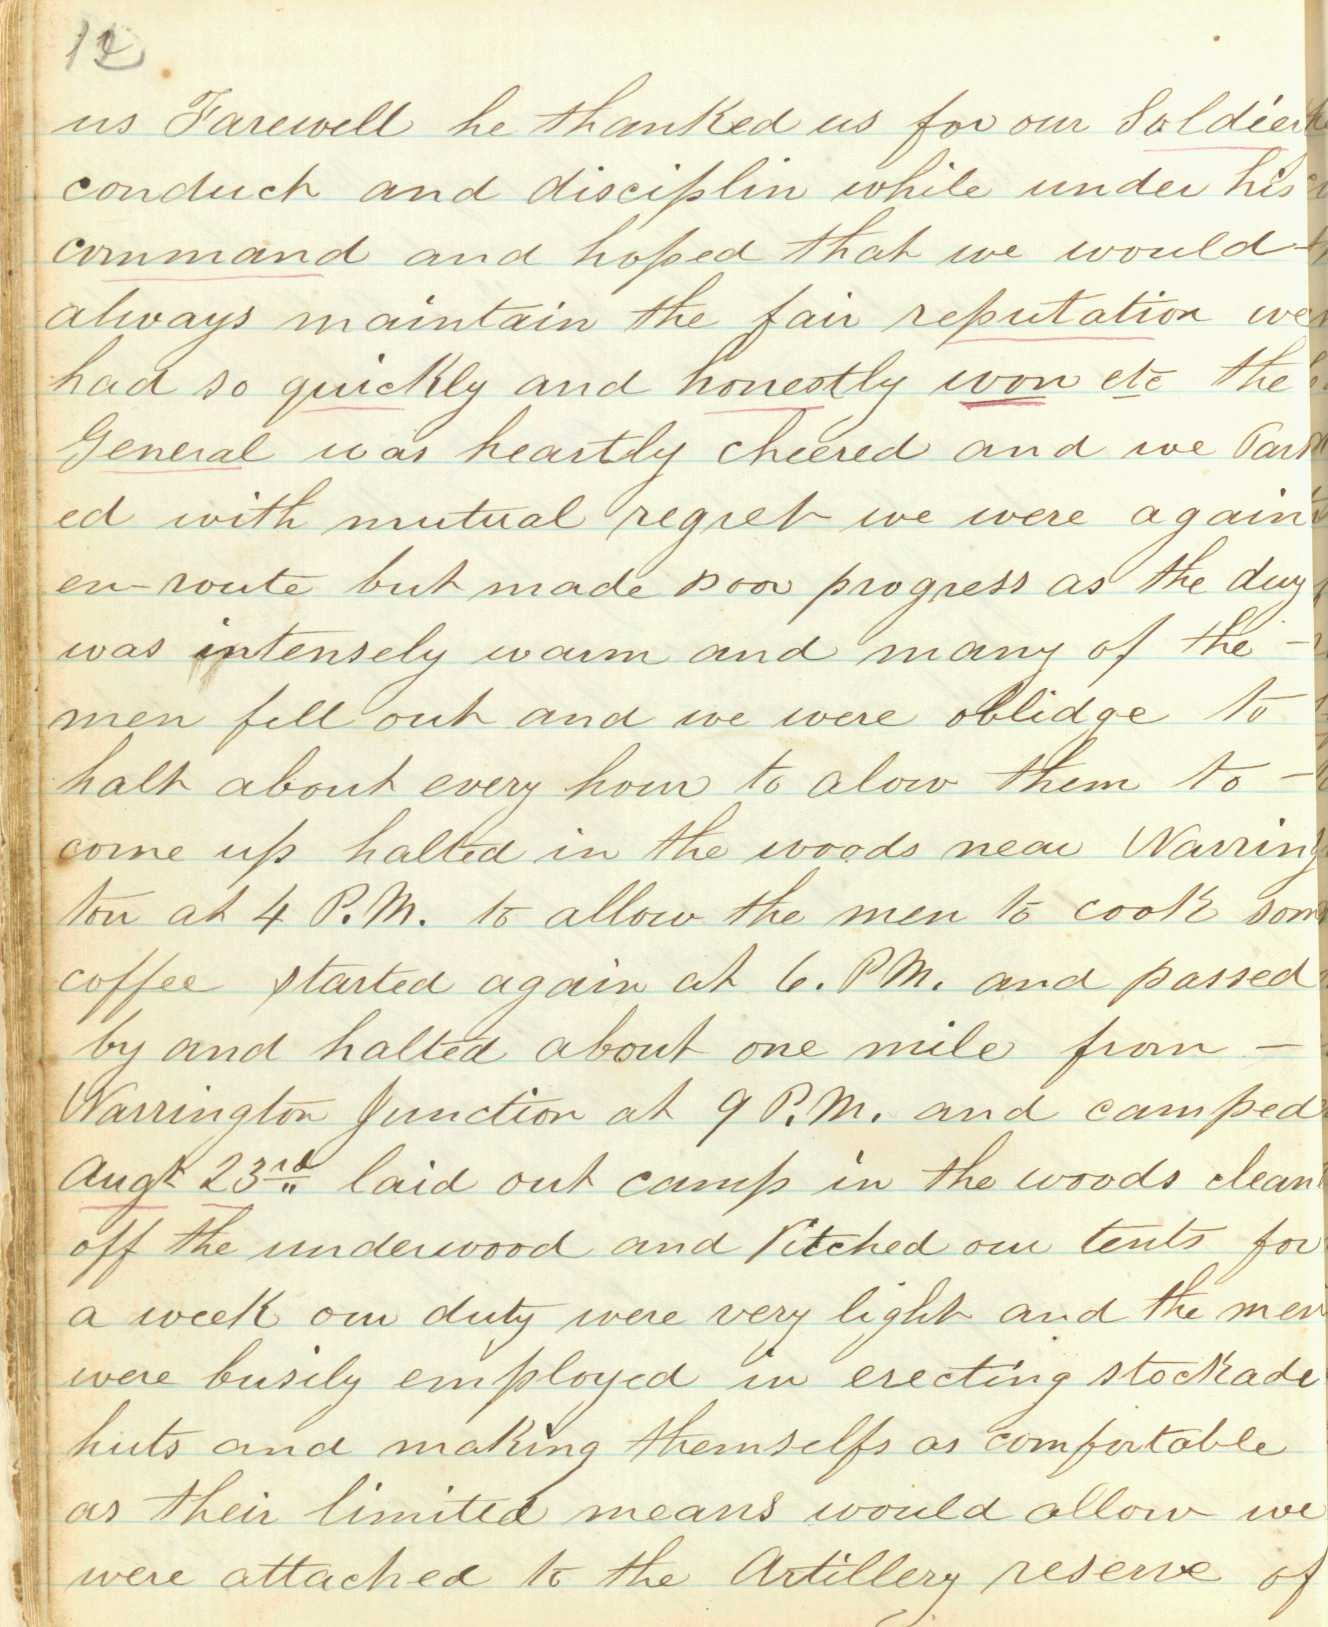 12
us Farewell he thanked us for our Soldier
conduct and disciplin while under his
command and hoped that we would
always maintain the fair reputation we
had so quickly and honestly won etc the
General was heartly cheered and we Part
ed with mutual regret we were again
en-route but made poor progress as the day
was intensely warm and many of the -
men fell out and we were oblidge to
halt about every hour to alow them to -
come up halted in the woods near Warring
ton at 4 P.M. to allow the men to cook some
coffee started again at 6. PM. and passed
by and halted about one mile from -
Warrington Junction at 9 P.M. and camped
Augt 23rd laid out camp in the woods clean
off the underwood and Pitched our tents for
a week our duty were very light and the men
were busily employed in erecting stockade
huts and making themselfs as comfortable
as their limited means would allow we
were attached to the Artillery reserve of